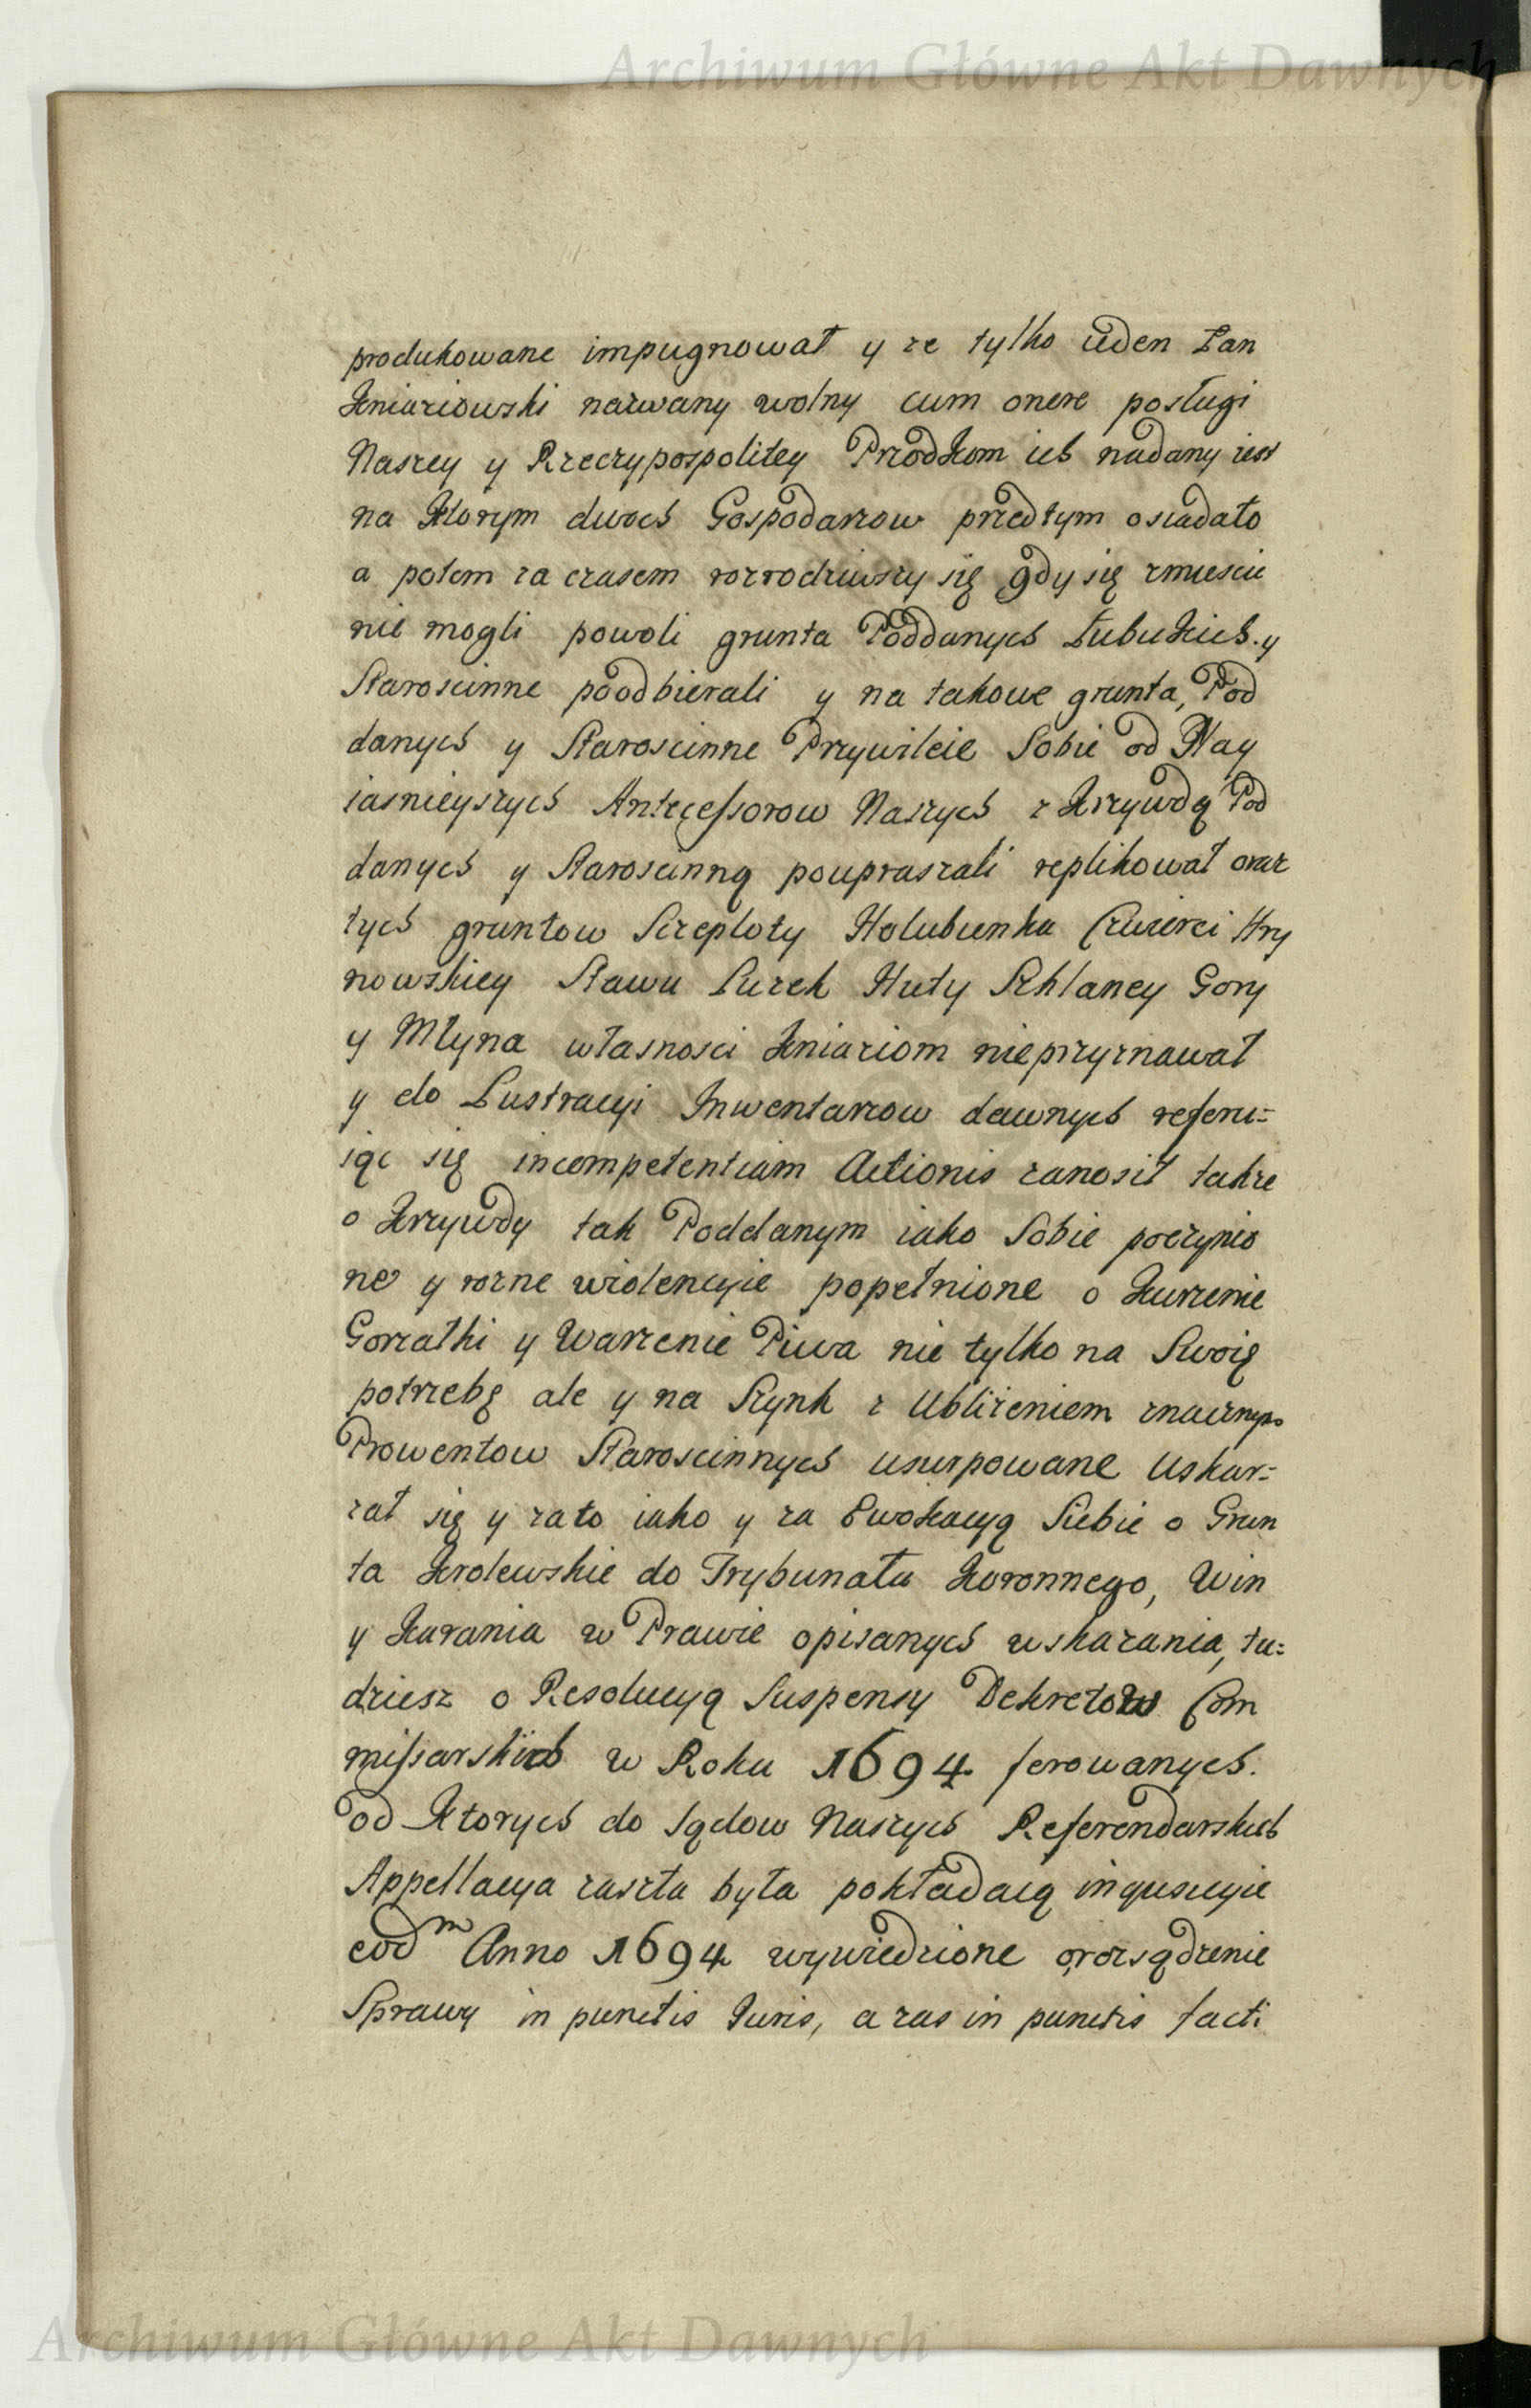 Archiwum Główne Akt Dawnych
produkowane impugnował y ze tylko ieden Łan
Kniaziowski nazwany wolny cum onere posługi
Naszey y Rzeczypospolitey Przodkom ich nadany iest
na ktorym dwoch Gospodarzow przedtym osiadało
a potem za czasem rozrodziwszy się gdy się zmiescic
nie mogli powoli grunta Poddanych Łubuskich y
Staroscinne poodbierali y na takowe grunta, Pod
danych y Staroscinne Przywileie Sobie od Nay
iasnieyszych Antecessorow Naszych z krzywdą Pod
danych y Staroscinną poupraszali replikował oraz
tych gruntow Szeptoty Hołubienka Czwierci Hry
nowskiey Stawu Huty Szklaney Gory
y Młyna własnosci Kniaziom nieprzyznawał
y do Lustracyi Inwentarzow dawnych referu=
iąc się incompetentiam Actionis zanosił także
o krzywdy tak Poddanym iako Sobie poczynio
ne y rozne wiolencyie popełnione o kurzenie
Gorzałki y Warzenie Piwa nie tylko na Swoię
potrzebę ale y na Szynk z Ubliżeniem znacznym
Prowentow Staroscinnych usurpowane Uskar=
zał się y za to iako y za Ewokacyą Siebie o Grun
ta Krolewskie do Trybunału Koronnego, Win
y karania w Prawie opisanych wskazania, tu=
dziesz o Resolucyą Suspensy Dekretow Com
missarskich w Roku 1694 ferowanych.
od ktorych do Sądow Naszych Referendarskich
Appellacya zaszła była pokładaią inquisicyie
eod<sup>m</sup> Anno 1694 wywiedzione o rozsądzenie
Sprawy in punctis Iuris, a zas in punctis facti
Archiwum Główne Akt Dawnych